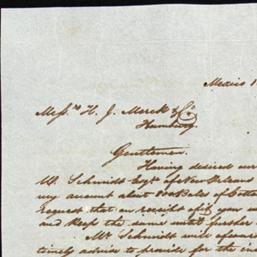 Mexico 1
Messrs. H. J. Merck & Co.
Hamburg.
Gentlemen.
Having desired
W. Schmidt Esqr. of New Orleans
my account about Bales of Cotton
request that on receipt of
and keep the same until further
Mr. Schmidt
timely advice to provide for the